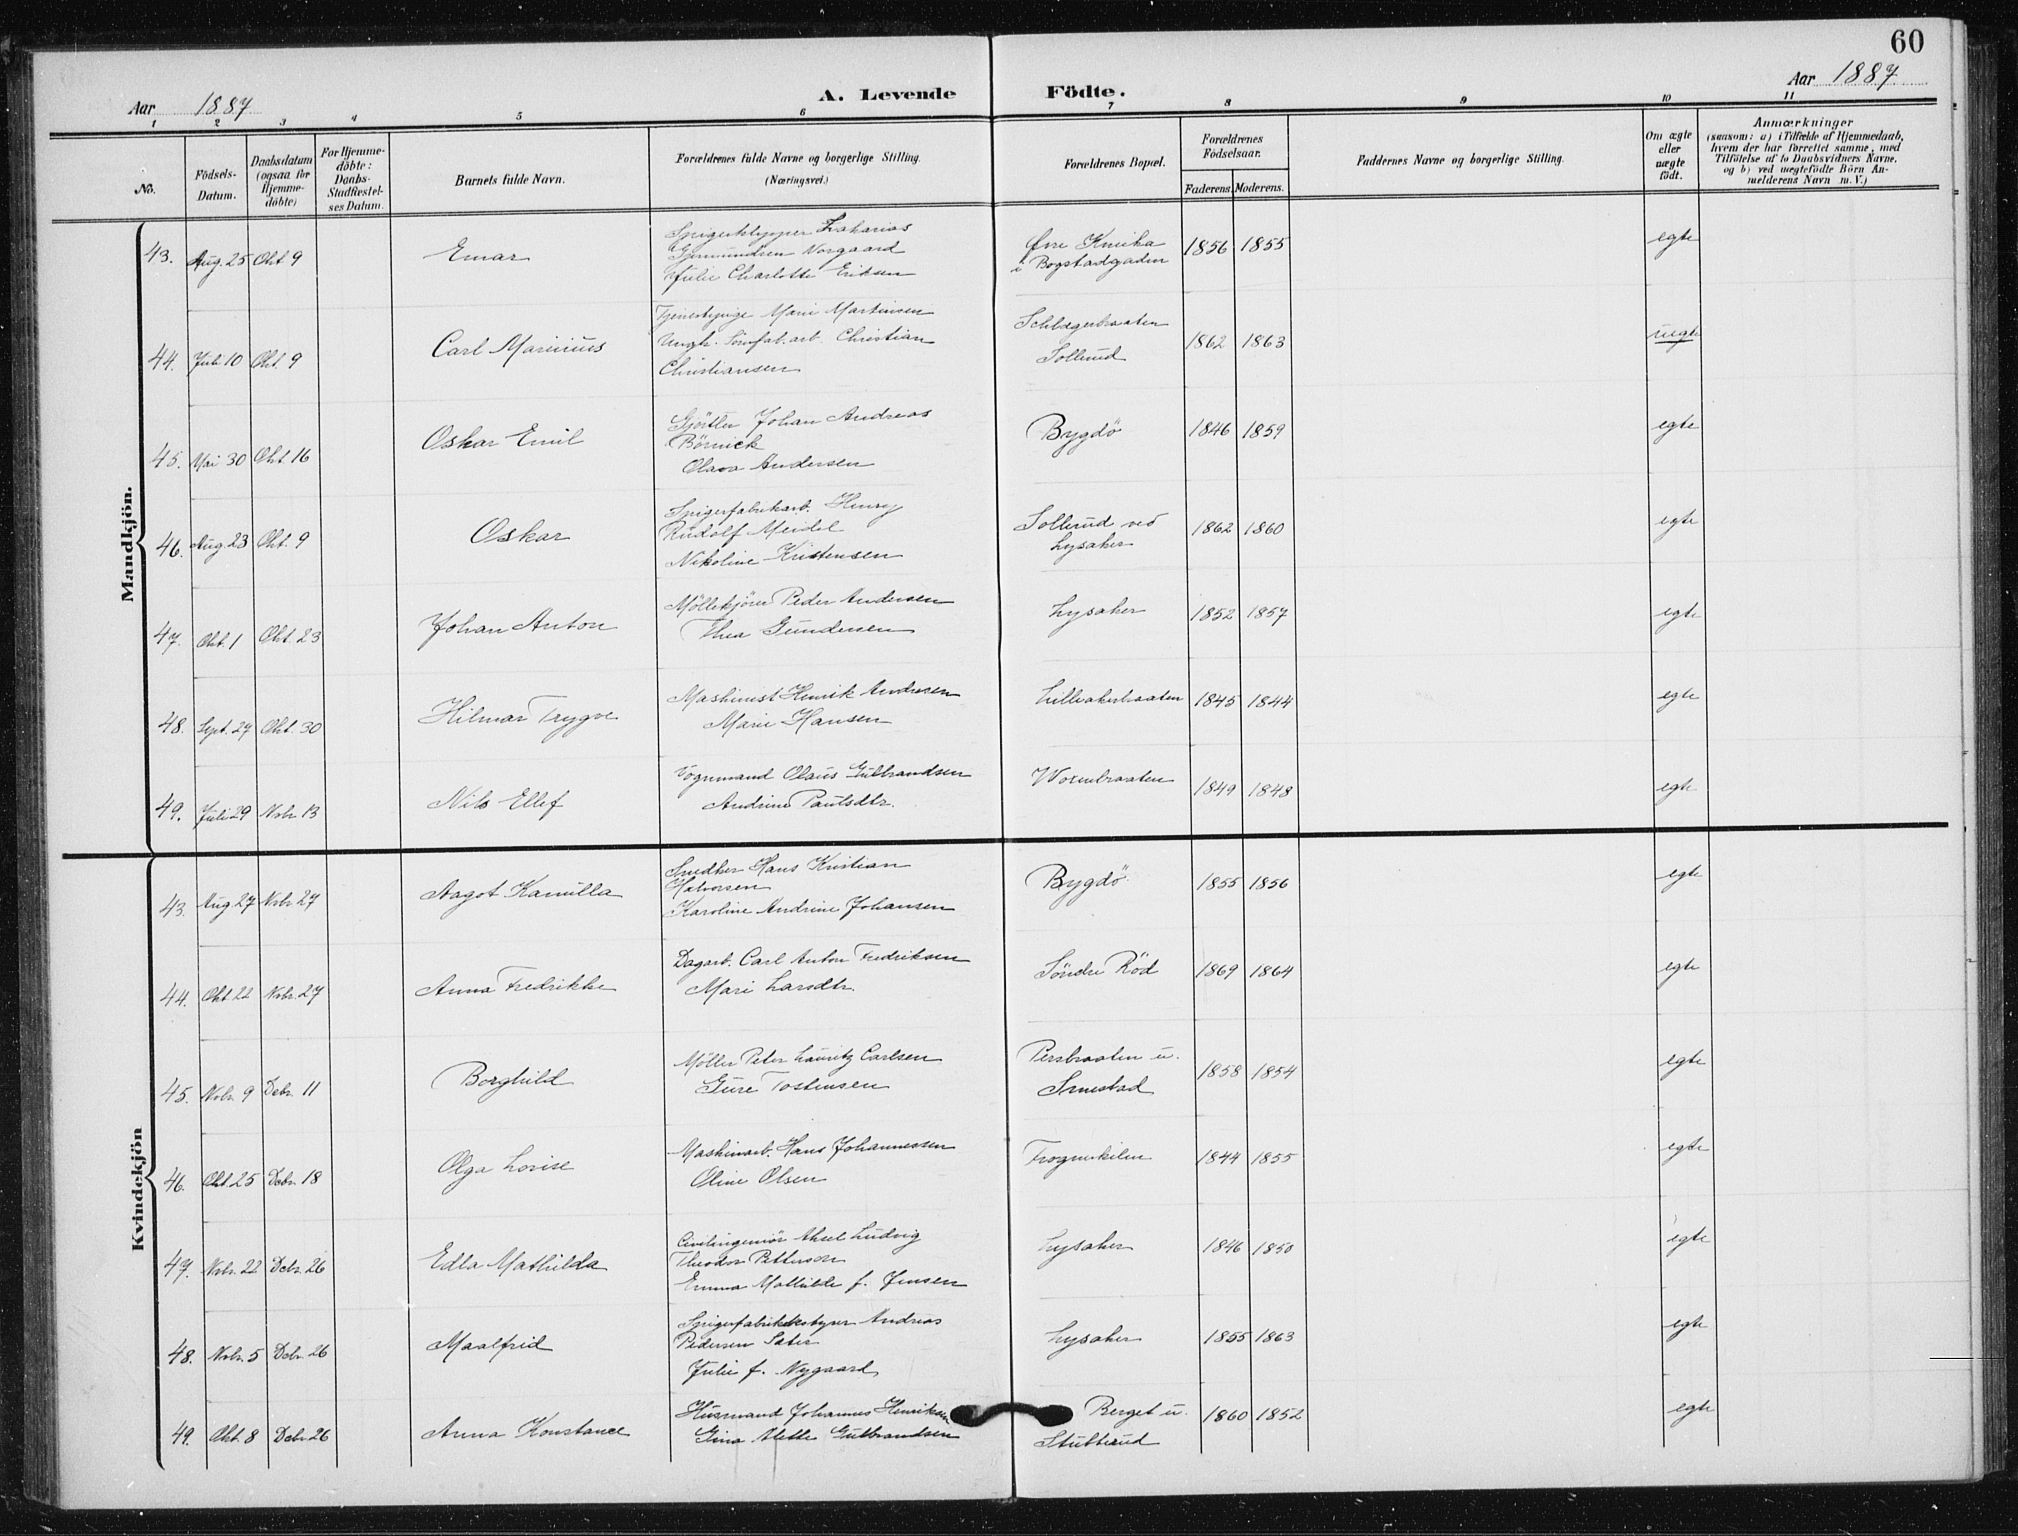 60
Aar 1887
A. Levende Födte.
Aar 1887
1 2 3 4 5 6 7 8 9 10 11
No.
Födsels-Datum.
Daabsdatum (ogsaa for Hjemme-döbte)
For Hjemme-döbte: Daabs-Stadfæstel-ses Datum.
Barnets fulde Navn.
Forældrenes fulde Navne og borgerlige Stilling.
(Næringsvei.)
Forældrenes Bopæl.
Forældrenes Födselsaar.
Faderens. Moderens.
Faddernes Navne og borgerlige Stilling.
Om ægte eller uægte födt.
Anmærkninger
(saasom: a) i Tilfælde af Hjemmedaab,
hvem der har forrettet samme, med
Tilföielse af to Daabsvidners Navne.
og b) ved uægtefödte Börn An-
melderens Navn m. V.)
Mandkjön.
43. Aug. 25 Okt 9 Einar
Spigerklipper Zakarias
Norgaard
Julie Charlotte Eriksen
Øvre
i Bogstadgaden
1856 1855 egte
44. Juli 10 Okt. 9 Carl Marinius
Tjenestepige Marie Martinsen
Ungk. Christian
Christiansen
Sollerud
1862 1863 uegte
45. Mai 30 Okt. 16 Oskar Emil
Gjörtler Johan Andreas
Börnick
Olava Andersen
Bygdö 1846 1859 egte
46. Aug. 23 Okt. 9 Oskar
Spigerfabrikarb. Henry
Rudolf Meidel
Nikoline Kristensen
Sollerud ved
Lysaker
1862 1860 egte
47. Okt. 1 Okt. 23 Johan Anton
Möllekjörer Peder Andersen
Thea Gundersen
Lysaker 1852 1857 egte
48. Sept. 27 Okt. 30 Hilmar Trygve
Maskinist Henrik Andresen
Marie Hansen
Lilleakerbraaten 1845 1844 egte
49. Juli 29 Nobr 13 Nils Ellef
Vognmand Olaus Gulbrandsen
Andrine Paulsdtr.
1849 1848 egte
Kvindekjön
43. Aug 27 Nobr 27 Aagot Kamilla
Smedker Hans Kristian
Halvorsen
Karoline Andrine Johansen
Bygdö 1855 1856 egte
44. Okt 22 Nobr. 27 Anna Fredrikke
Dagarb. Carl Anton Fredriksen
Mari Larsdtr.
Söndre Röd 1869 1864 egte
45. Nobr. 9 Debr. 11 Borghild
Möller Peter Lauritz Carlsen
Gure Tostensen
Persbraaten u.
Smestad
1858 1854 egte
46. Okt. 25 Debr. 18 Olga Lovise
Maskinarb. Hans Johannessen
Oline Olsen
Frognerkilen 1844 1855 egte
47. Nobr. 22 Debr. 26 Edla Mathilda
Civilingeniör Aksel Ludvig
Theodor Petterson
Emma Mathilde f. Jensen
Lysaker 1846 1850 egte
48. Nobr. 5 Debr. 26 Maalfrid
Andreas
Pedersen Sater
Julie f. Nygaard
Lysaker 1855 1863 egte
49. Okt. 8 Debr 26 Anna Konstance
Husmand Johannes Henriksen
Gina Alette Gulbrandsen
Berget u.
Stubberud
1860 1852 egte